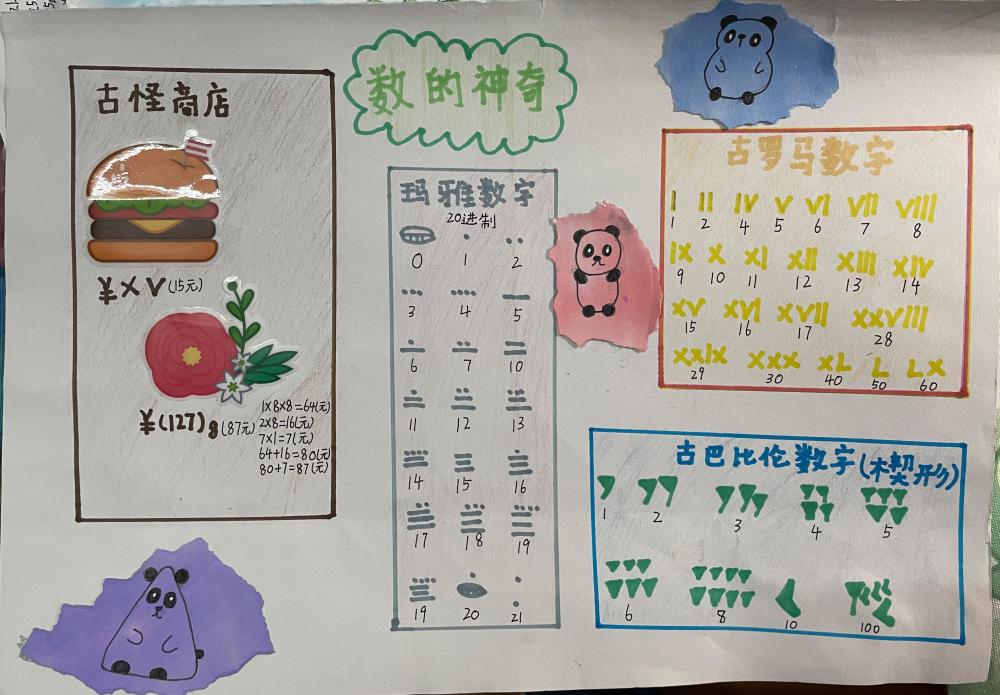 数的神奇
古怪商店
¥XV(15元)
¥(127)8(87元)
1×8×8=64(元)
2×8=16(元)
7×1=7(元)
64+16=80(元)
80+7=87(元)
玛雅数字
20进制
0 1 2
3 4 5
6 7 10
11 12 13
14 15 16
17 18 19
19 20 21
古罗马数字
I II IV V VI VII VIII
1 2 4 5 6 7 8
IX X XI XII XIII XIV
9 10 11 12 13 14
XV XVI XVII XXVIII
15 16 17 28
XXIX XXX XL L LX
29 30 40 50 60
古巴比伦数字(楔形)
1 2 3 4 5
6 8 10 100